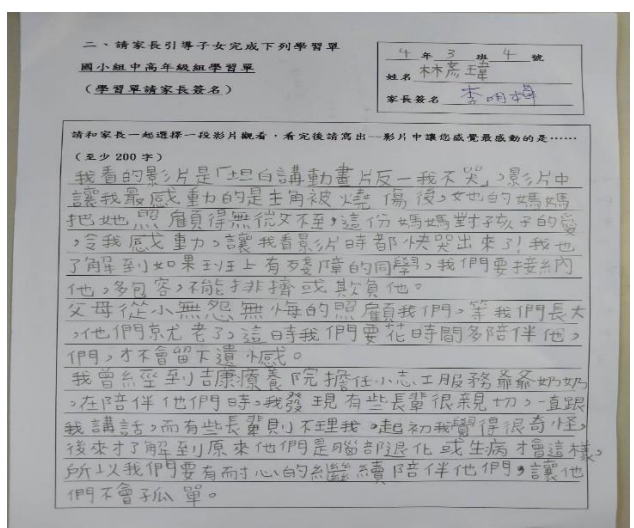 二、請家長引導子女完成下列學習單
國小組中高年級組學習單
(學習單請家長簽名)
4 年 3 班 4 號
姓名 林彥瑋
家長簽名 李明樺
請和家長一起選擇一段影片觀看,看完後請寫出—影片中讓您感覺最感動的是……
(至少 200 字)
我看的影片是「坦白講動畫片反—我不哭」,影片中
讓我最感動的是主角被燒傷後,她的媽媽
把她照顧得無微不至,這份媽媽對孩子的愛
,令我感動,讓我看影片時都快哭出來了!我也
了解到如果班上有殘障的同學,我們要接納
他,多包容,不能排擠或欺負他。
父母從小無怨無悔的照顧我們,等我們長大
,他們就老了,這時我們要花時間多陪伴他,
們,才不會留下遺憾。
我曾經到吉康療養院擔任小志工服務爺爺奶奶
,在陪伴他們時,我發現有些長輩很親切,一直跟
我講話,而有些長輩則不理我,起初我覺得很奇怪,
後來才了解到原來他們是腦部退化或生病才會這樣,
所以我們要有耐心的繼續陪伴他們,讓他
們不會孤單。